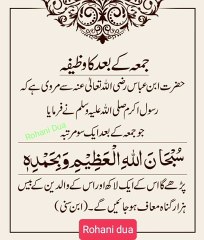 جمعہ کے بعد کا وظیفہ
حضرت ابن عباس رضی اللہ تعالیٰ عنہ سے مروی ہے کہ
رسول اکرم صلی اللہ علیہ وسلم نے فرمایا
جو جمعہ کے بعد ایک سو مرتبہ
Rohani Dua
سُبْحَانَ اللهِ الْعَظِيْمِ وَبِحَمْدِهٖ
پڑھے گا اس کے ایک لاکھ اور اس کے والدین کے بیس
ہزار گناہ معاف ہو جائیں گے۔ (ابن سنی)
Rohani dua